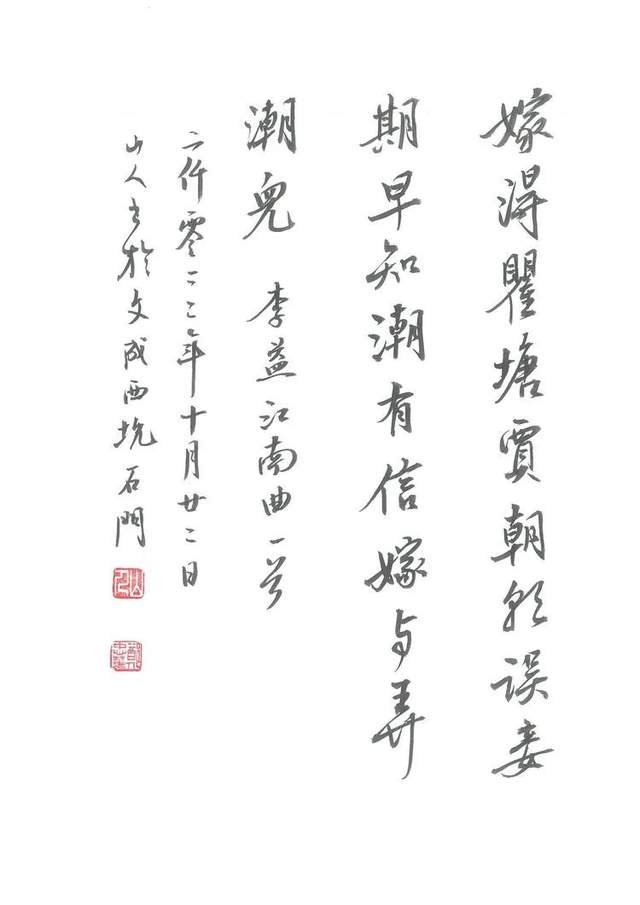 嫁得瞿塘賈朝朝误妾
期早知潮有信嫁与弄
潮兒 李益江南曲一首
二仟零二二年十月廿二日
山人书於文成西坑石門
山人